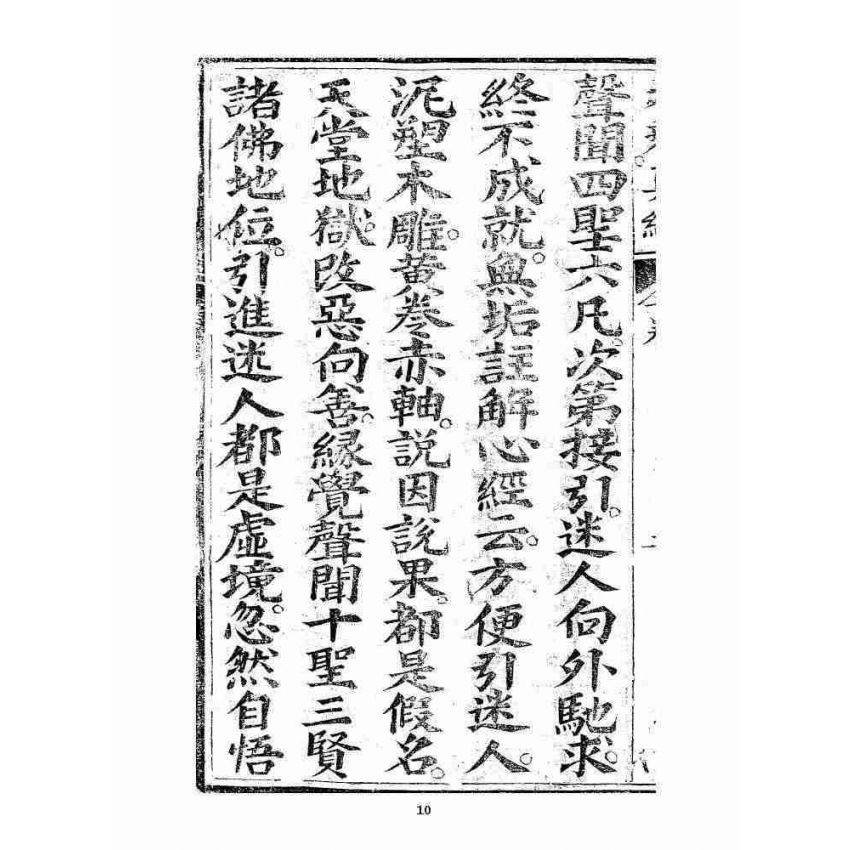 聲聞四聖六凡。次第接引。迷人向外馳求。
終不成就。無垢註解心經云。方便引迷人。
泥塑木雕。黄卷赤軸。說因說果。都是假名。
天堂地獄。改惡向善。縁覺聲聞十聖三賢
諸佛地位。引進迷人都是虛境。忽然自悟
10